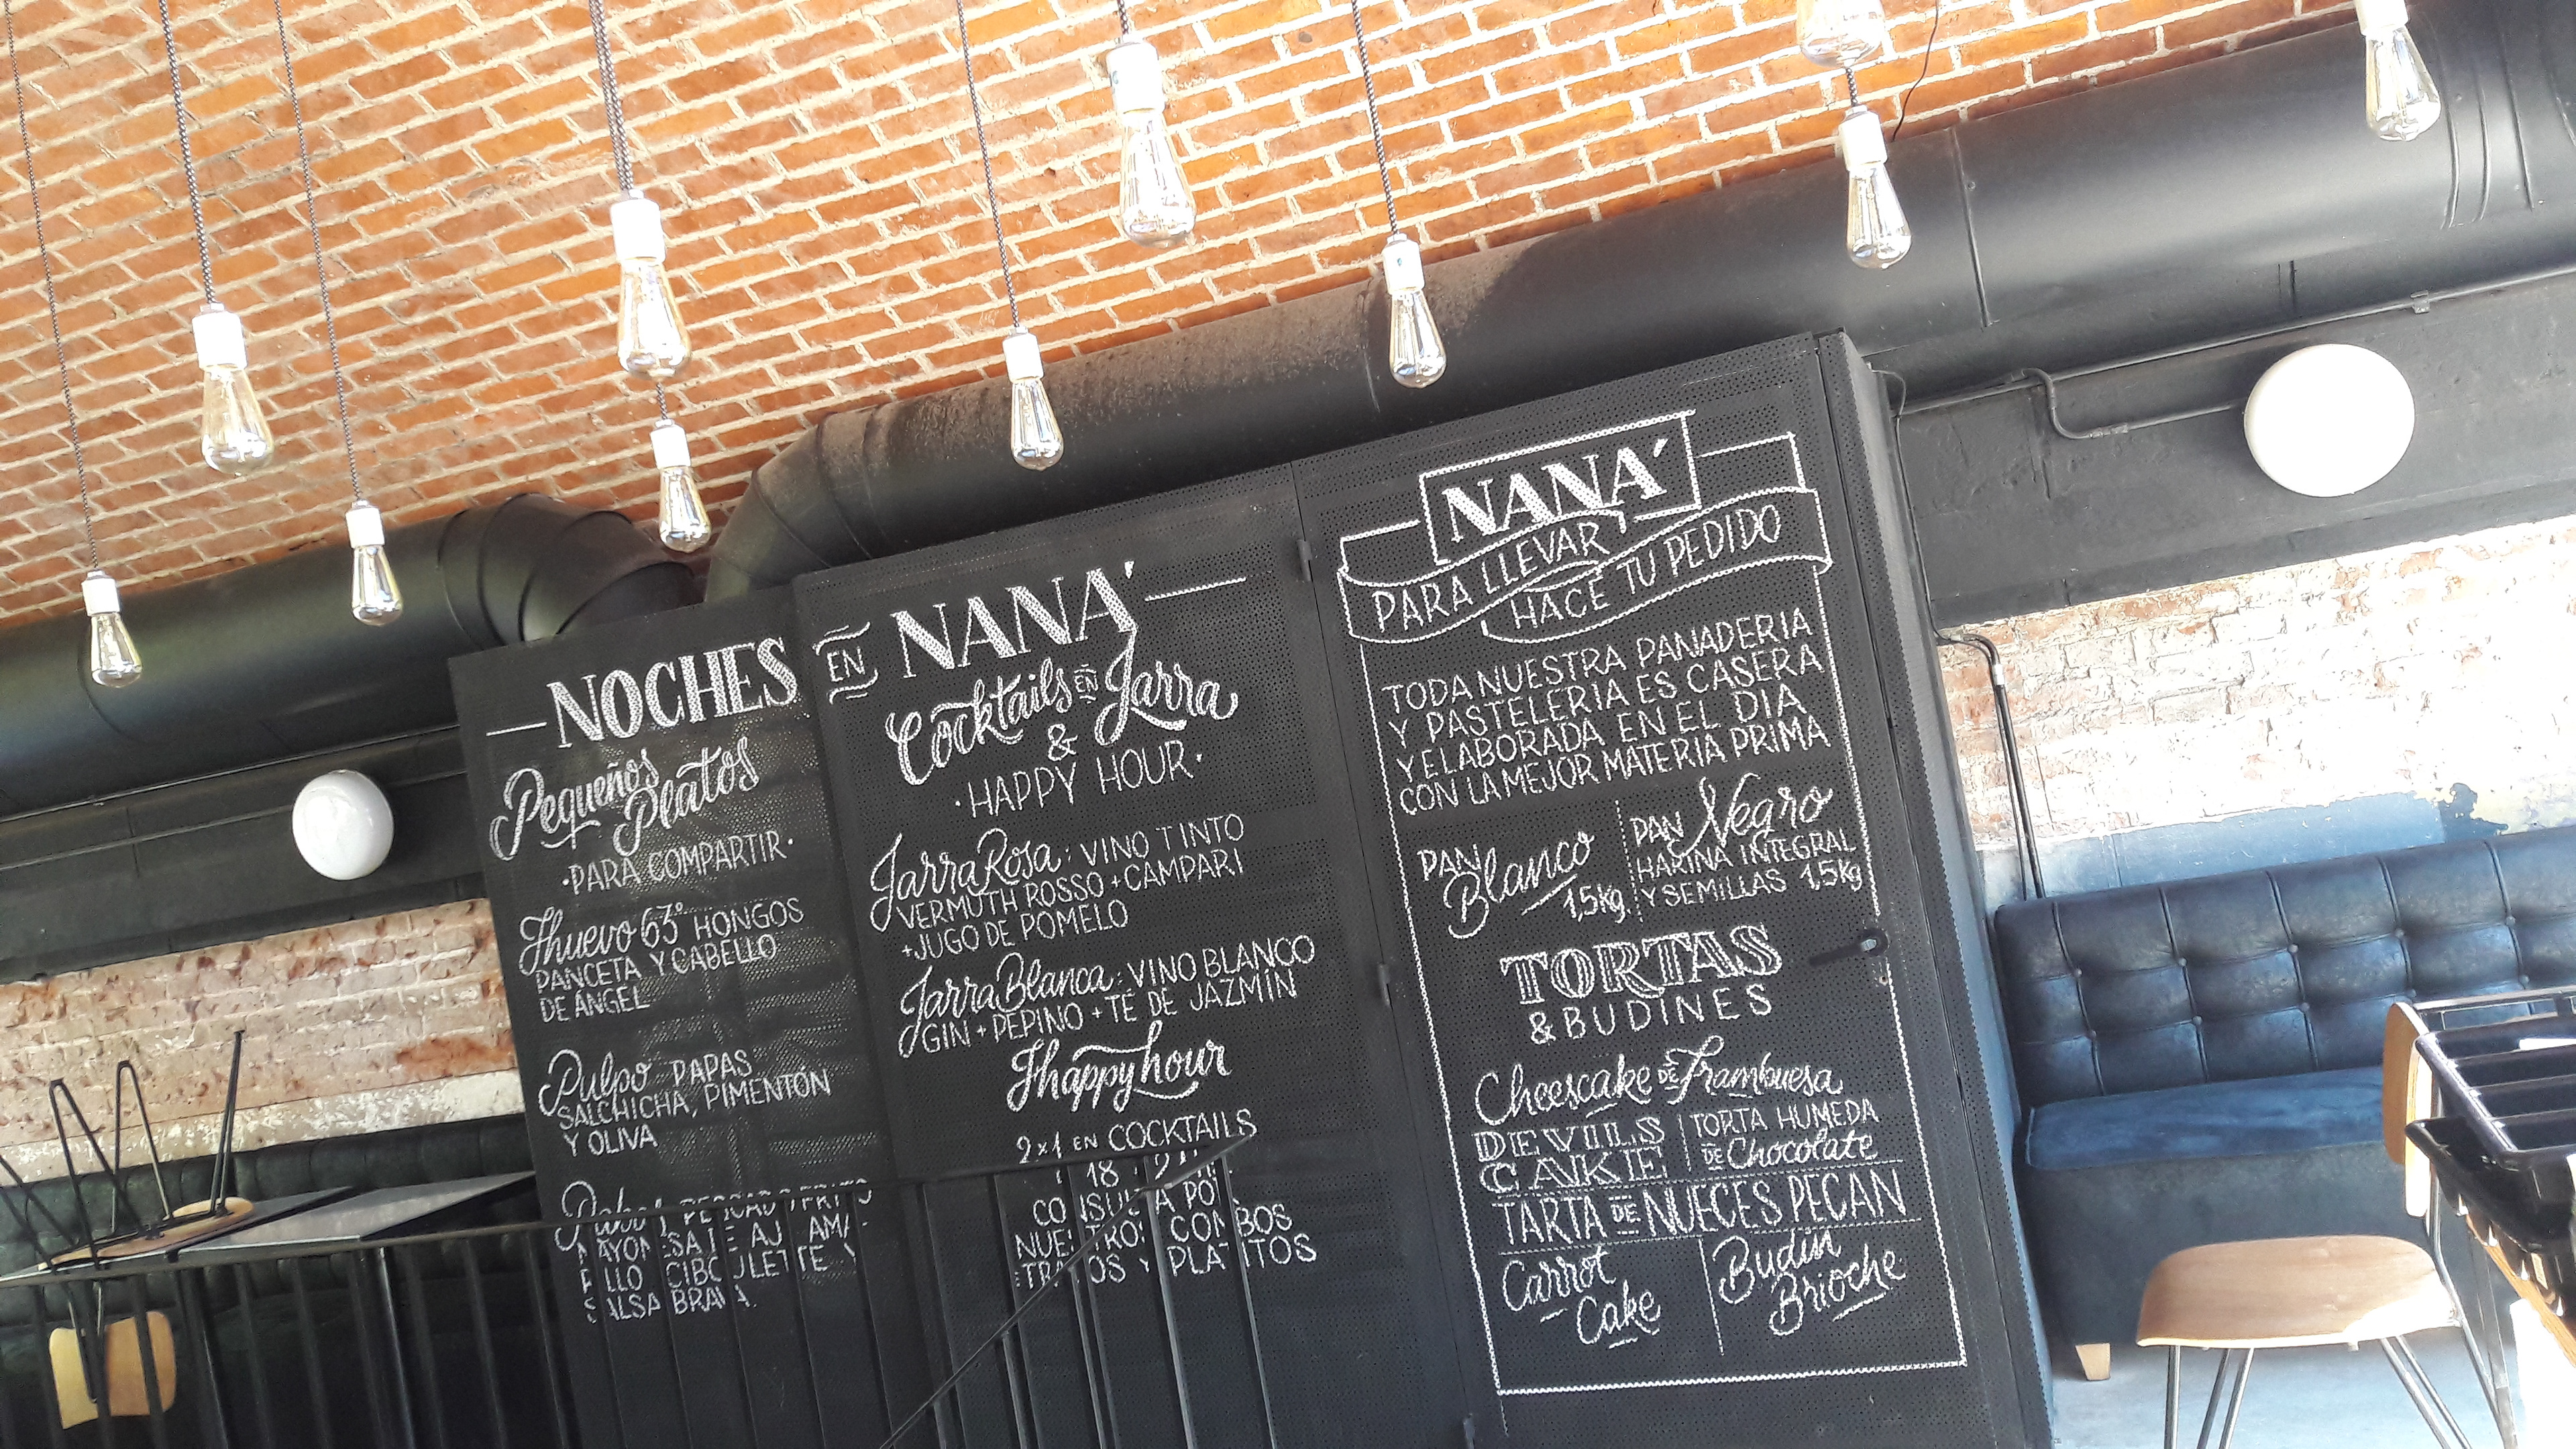 NOCHES EN NANÁ
Pequeños
Platos
·PARA COMPARTIR·
Huevo 63° HONGOS
PANCETA Y CABELLO
DE ÁNGEL
Pulpo PAPAS
SALCHICHA, PIMENTÓN
Y OLIVA
SALSA BRAVA.
Cocktails EN Jarra
&
·HAPPY HOUR·
Jarra Rosa: VINO TINTO
VERMUTH ROSSO + CAMPARI
+JUGO DE POMELO
Jarra Blanca: VINO BLANCO
GIN + PEPINO + TÉ DE JAZMÍN
Happy hour
2x1 EN COCKTAILS
18
CONSULTA POR
NUESTROS COMBOS
TRAGOS Y PLATITOS
NANÁ
PARA LLEVAR
HACÉ TU PEDIDO
TODA NUESTRA PANADERIA
Y PASTELERIA ES CASERA
Y ELABORADA EN EL DIA
CON LA MEJOR MATERIA PRIMA
PAN Blanco 1,5kg.
PAN Negro
HARINA INTEGRAL
Y SEMILLAS 1,5kg
TORTAS
& BUDINES
Cheescake DE Frambuesa
DEVILS CAKE
TORTA HUMEDA
DE Chocolate
TARTA DE NUECES PECAN
Carrot Cake
Budin Brioche